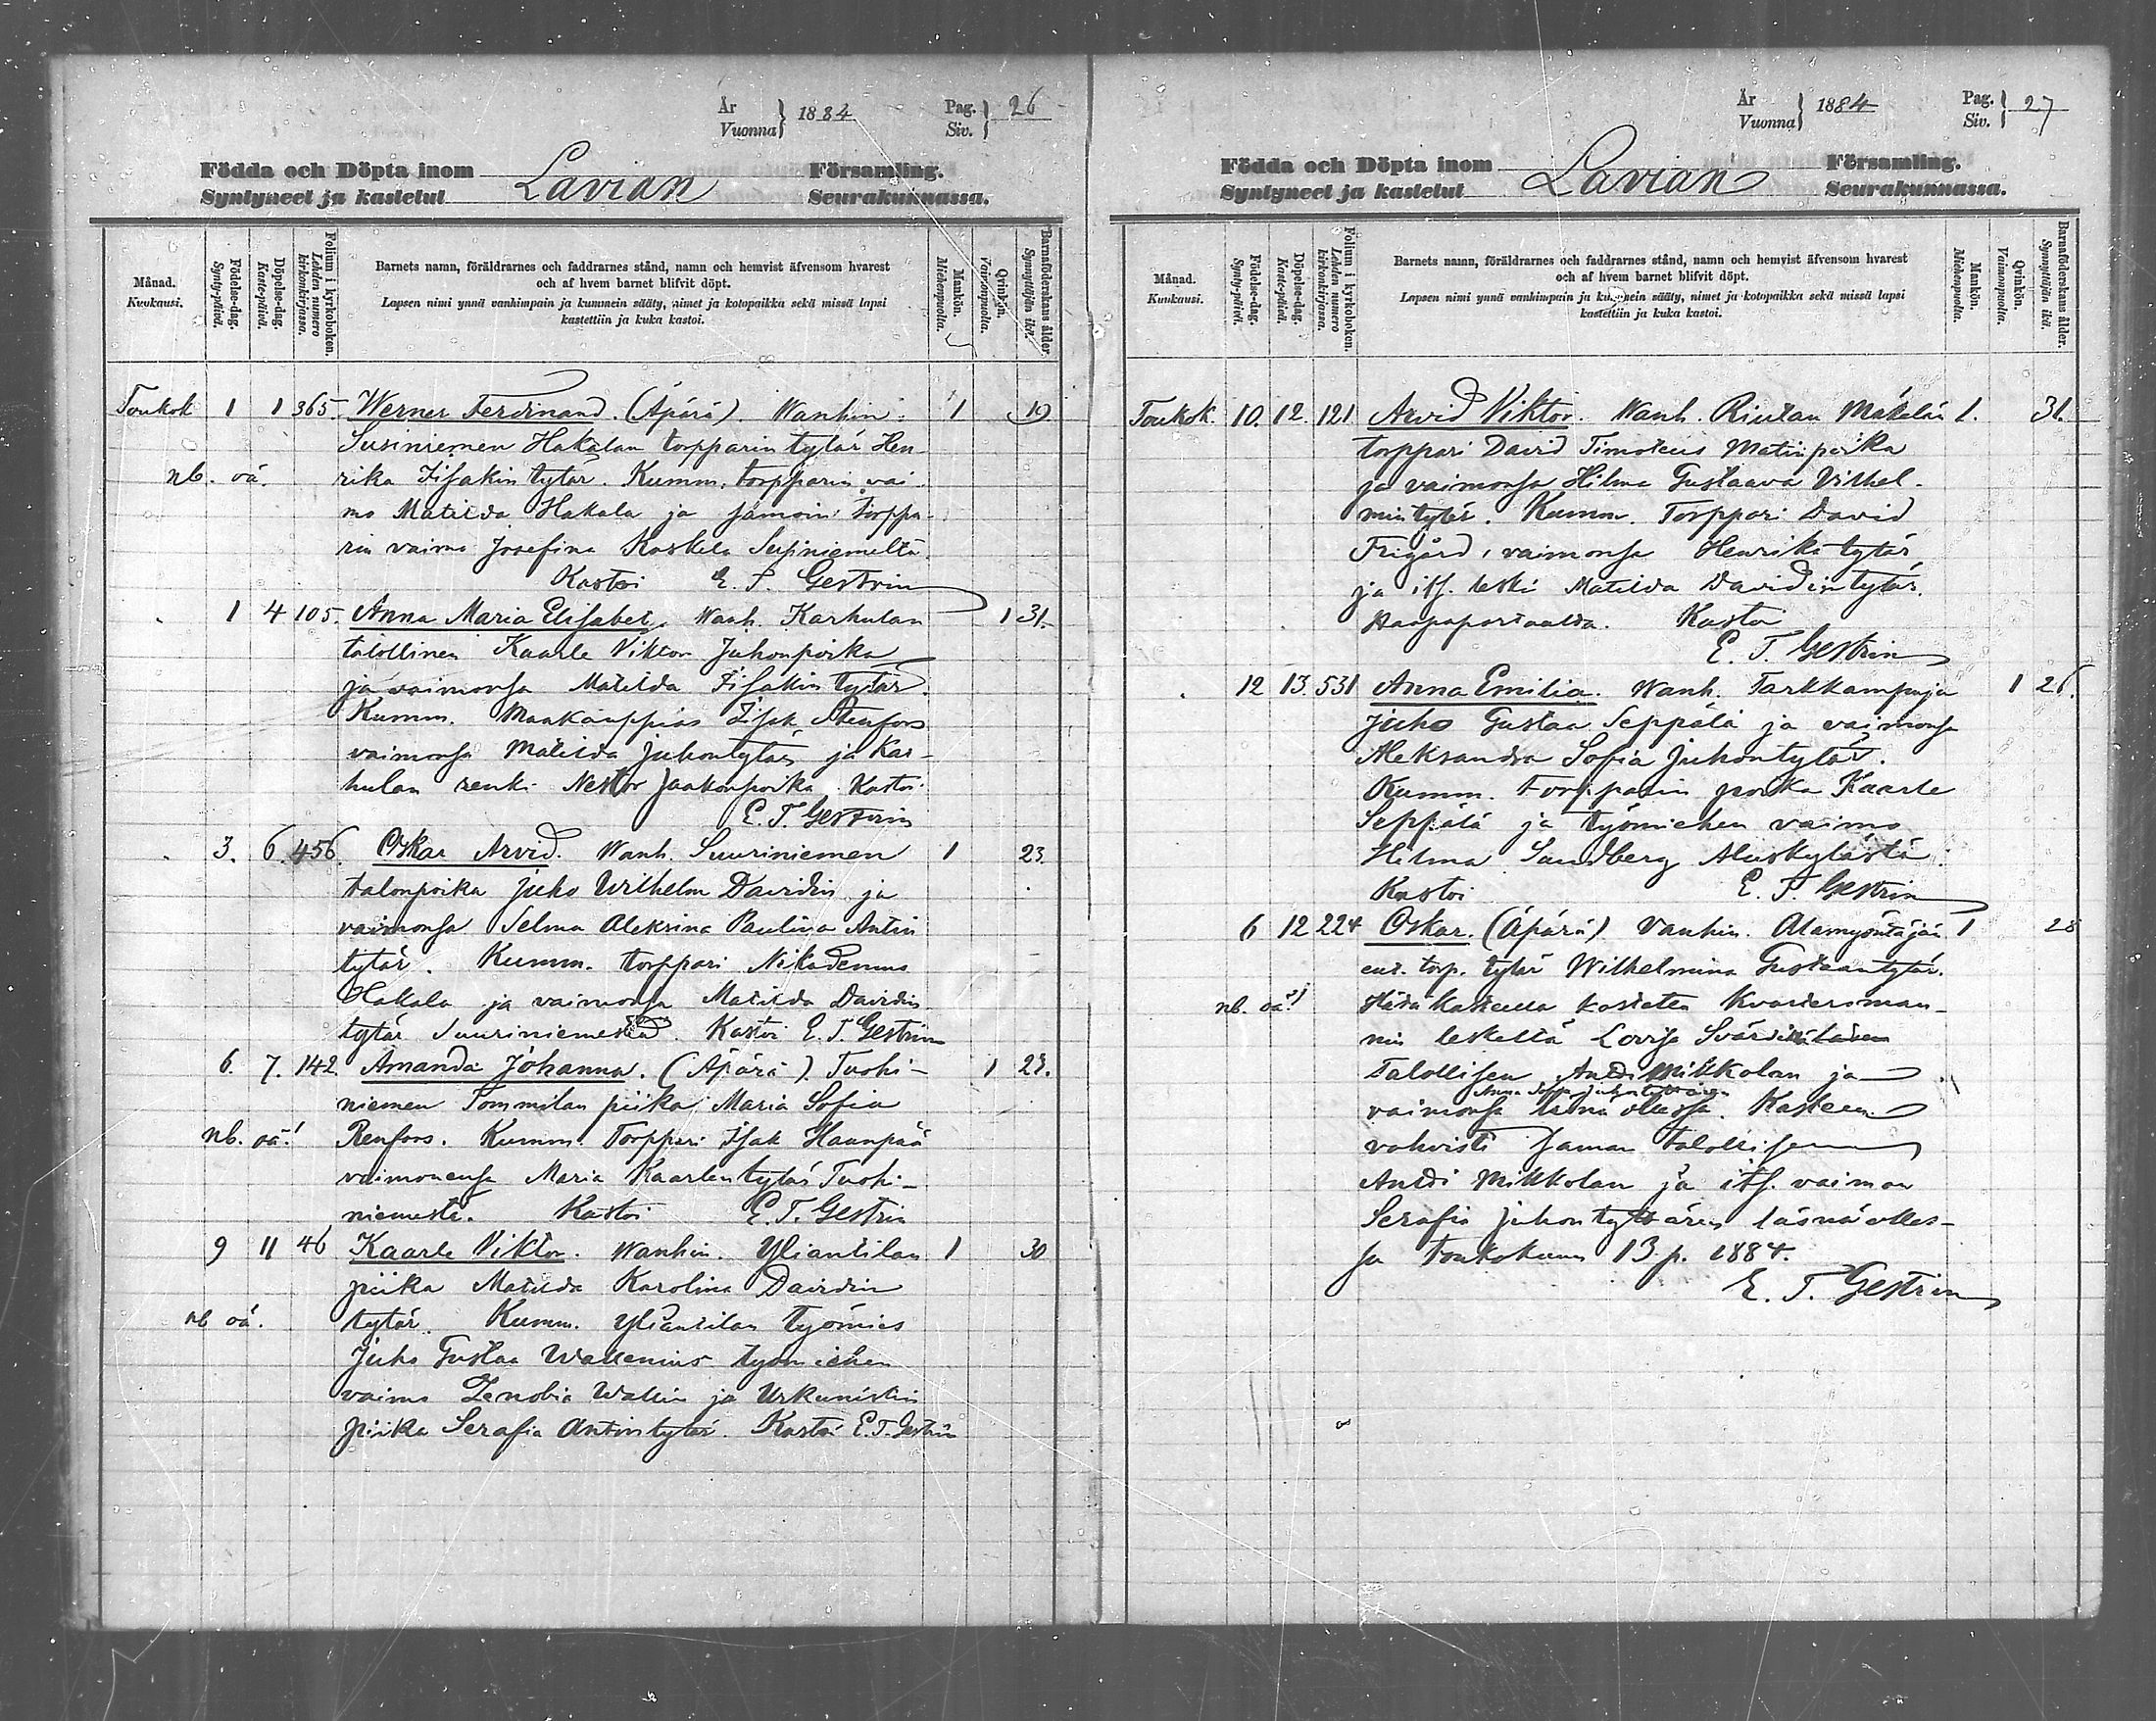 År
Vuonna} 1884
Pag.
Siv.} 26
Födda och Döpta inom
Syntyneet ja kastetut Lavian Församling.
Seurakunnassa.
Månad.
Kuukausi.
Födelse-dag.
Synty-päivä.
Döpelse-dag.
Kaste-päivä.
Folium i kyrkoboken.
Lehden numero
kirkonkirjassa.
Barnets namn, föräldrarnes och faddrarnes stånd, namn och hemvist äfvensom hvarest
och af hvem barnet blifvit döpt.
Lapsen nimi ynnä vanhimpain ja kummein sääty, nimet ja kotopaikka sekä missä lapsi
kastettiin ja kuka kastoi.
Mankön.
Miehenpuolia.
Qvinkön.
Vaimonpuolia.
Barnaföderskans ålder.
Synnyttäjän ikä.
Toukok 1 1 365. Werner Ferdinand. (Äpärä). Wanhin. 1 19.
Susiniemen Hakalan torpparin tytär Hen-
nb. oä. rika Iisakin tytär. Kumm. torpparin vai-
mo Matilda Hakala ja samoin torppa-
rin vaimo Josefina Koskela Susiniemeltä.
Kastoi E. T. Gestrin
1 4 105. Anna Maria Elisabet. Wanh. Karhulan 1 31.
talollinen Kaarle Viktor Juhonpoika
ja vaimonsa Matilda Iisakin tytär.
Kumm. Maakauppias Isak Stenfors
vaimonsa Matilda Juhontytär ja Kar-
hulan renki Nestor Jaakonpoika. Kastoi
E. T. Gestrin
3. 6. 456. Oskar Arvid. Wanh. Suuriniemen 1 23.
talonpoika Juho Wilhelm Davidin ja
vaimonsa Selma Aleksina Paulina Antin
tytär. Kumm. torppari Nikodemus
Hakala ja vaimonsa Matilda Davidin
tytär Suuriniemestä. Kastoi E. T. Gestrin
6. 7. 142. Amanda Johanna. (Äpärä). Tuohi- 1 23.
niemen Tommilan piika Maria Sofia
nb. oä! Renfors. Kumm. Torppari Isak Haanpää
vaimonensa Maria Kaarlentytär Tuohi-
niemestä. Kastoi E. T. Gestrin
9 11 46 Kaarle Viktor. Wanhin. Yliantilan 1 30
piika Matilda Karolina Davidin
nb oä. tytär. Kumm. Yliantilan työmies
Juho Gustaa Wallenius työmiehen
vaimo Zenobia Wallin ja Urkunistin
piika Serafia Antintytär. Kastoi E. T. Gestrin
År
Vuonna} 1884
Pag.
Siv.} 27
Födda och Döpta inom
Syntyneet ja kastetut Lavian Församling.
Seurakunnassa.
Månad.
Kuukausi.
Födelse-dag.
Synty-päivä.
Döpelse-dag.
Kaste-päivä.
Folium i kyrkoboken.
Lehden numero
kirkonkirjassa.
Barnets namn, föräldrarnes och faddrarnes stånd, namn och hemvist äfvensom hvarest
och af hvem barnet blifvit döpt.
Lapsen nimi ynnä vanhimpain ja kummein sääty, nimet ja kotopaikka sekä missä lapsi
kastettiin ja kuka kastoi.
Mankön.
Miehenpuolia.
Qvinkön.
Vaimonpuolia.
Barnaföderskans ålder.
Synnyttäjän ikä.
Toukok. 10. 12. 121 Arvid Viktor. Wanh. Riutan Mäkelän 1. 31.
torppari David Timoteus Matinpoika
ja vaimonsa Hilma Gustaava Vilhel-
mintytär. Kumm. Torppari David
Frigård, vaimonsa Henrika tytär
ja its. leski Matilda Davidin tytär.
Haapaportaalda. Kastoi
E. T. Gestrin
12 13. 531 Anna Emilia. Wanh. Tarkkampuja 1 26.
Juho Gustaa Seppälä ja vaimonsa
Aleksandra Sofia Juhontytär.
Kumm. Torpparin poika Kaarle
Seppälä ja työmiehen vaimo
Hilma Sandberg Aluskylästä.
Kastoi E. T. Gestrin
6 12 224 Oskar. (Äpärä). Vanhin. Alamyöntäjän 1 28
ent. torp. tytär Wilhelmina Gustaantytär.
nb. oä! Hätäkasteella kastettu Kvartersman-
nin leskeltä Lovisa Svärd
Talollisen Antti Mikkolan ja
vaimonsa läsnä ollessa. Kasteen
vahvisti saman talollisen
Antti Mikkolan ja its. vaimon
Serafia Juhontyttären läsnä olles-
sa Toukokuun 13 p. 1884.
E. T. Gestrin